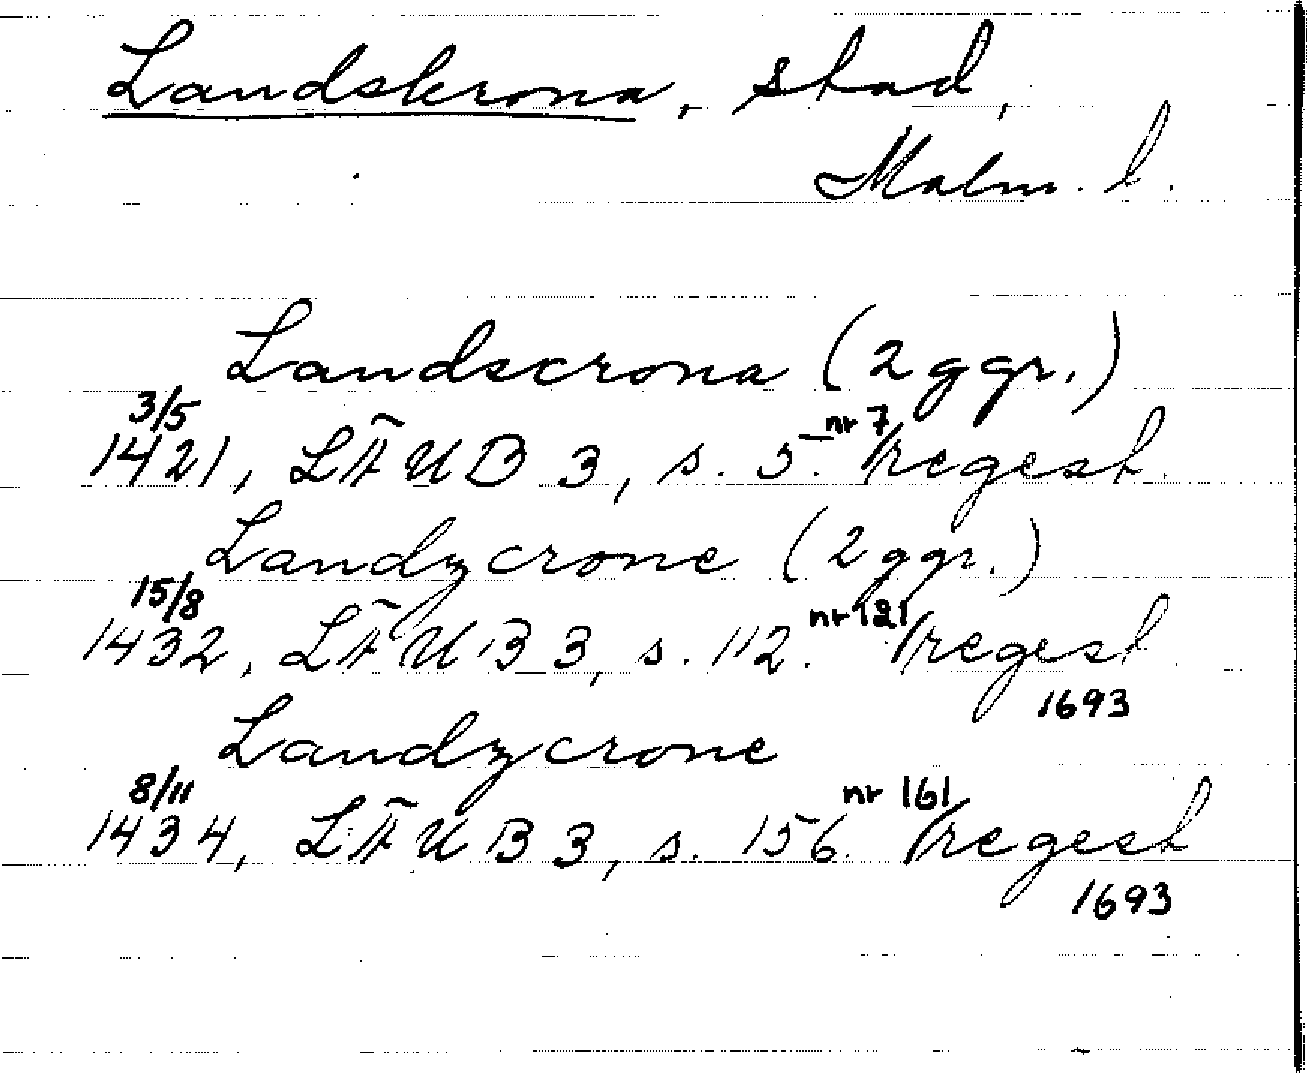 Landskrona, stad,
Malm. l.
Landscrona (2 ggr.)
3/5
1421, LÄUB 3, s. 5. nr 7 regest
Landzcrone (2 ggr.)
15/8
1432, LÄUB 3, s. 112. nr 121 regest
1693
Landzcrone
8/11
1434, LÄUB 3, s. 156. nr 161 regest
1693